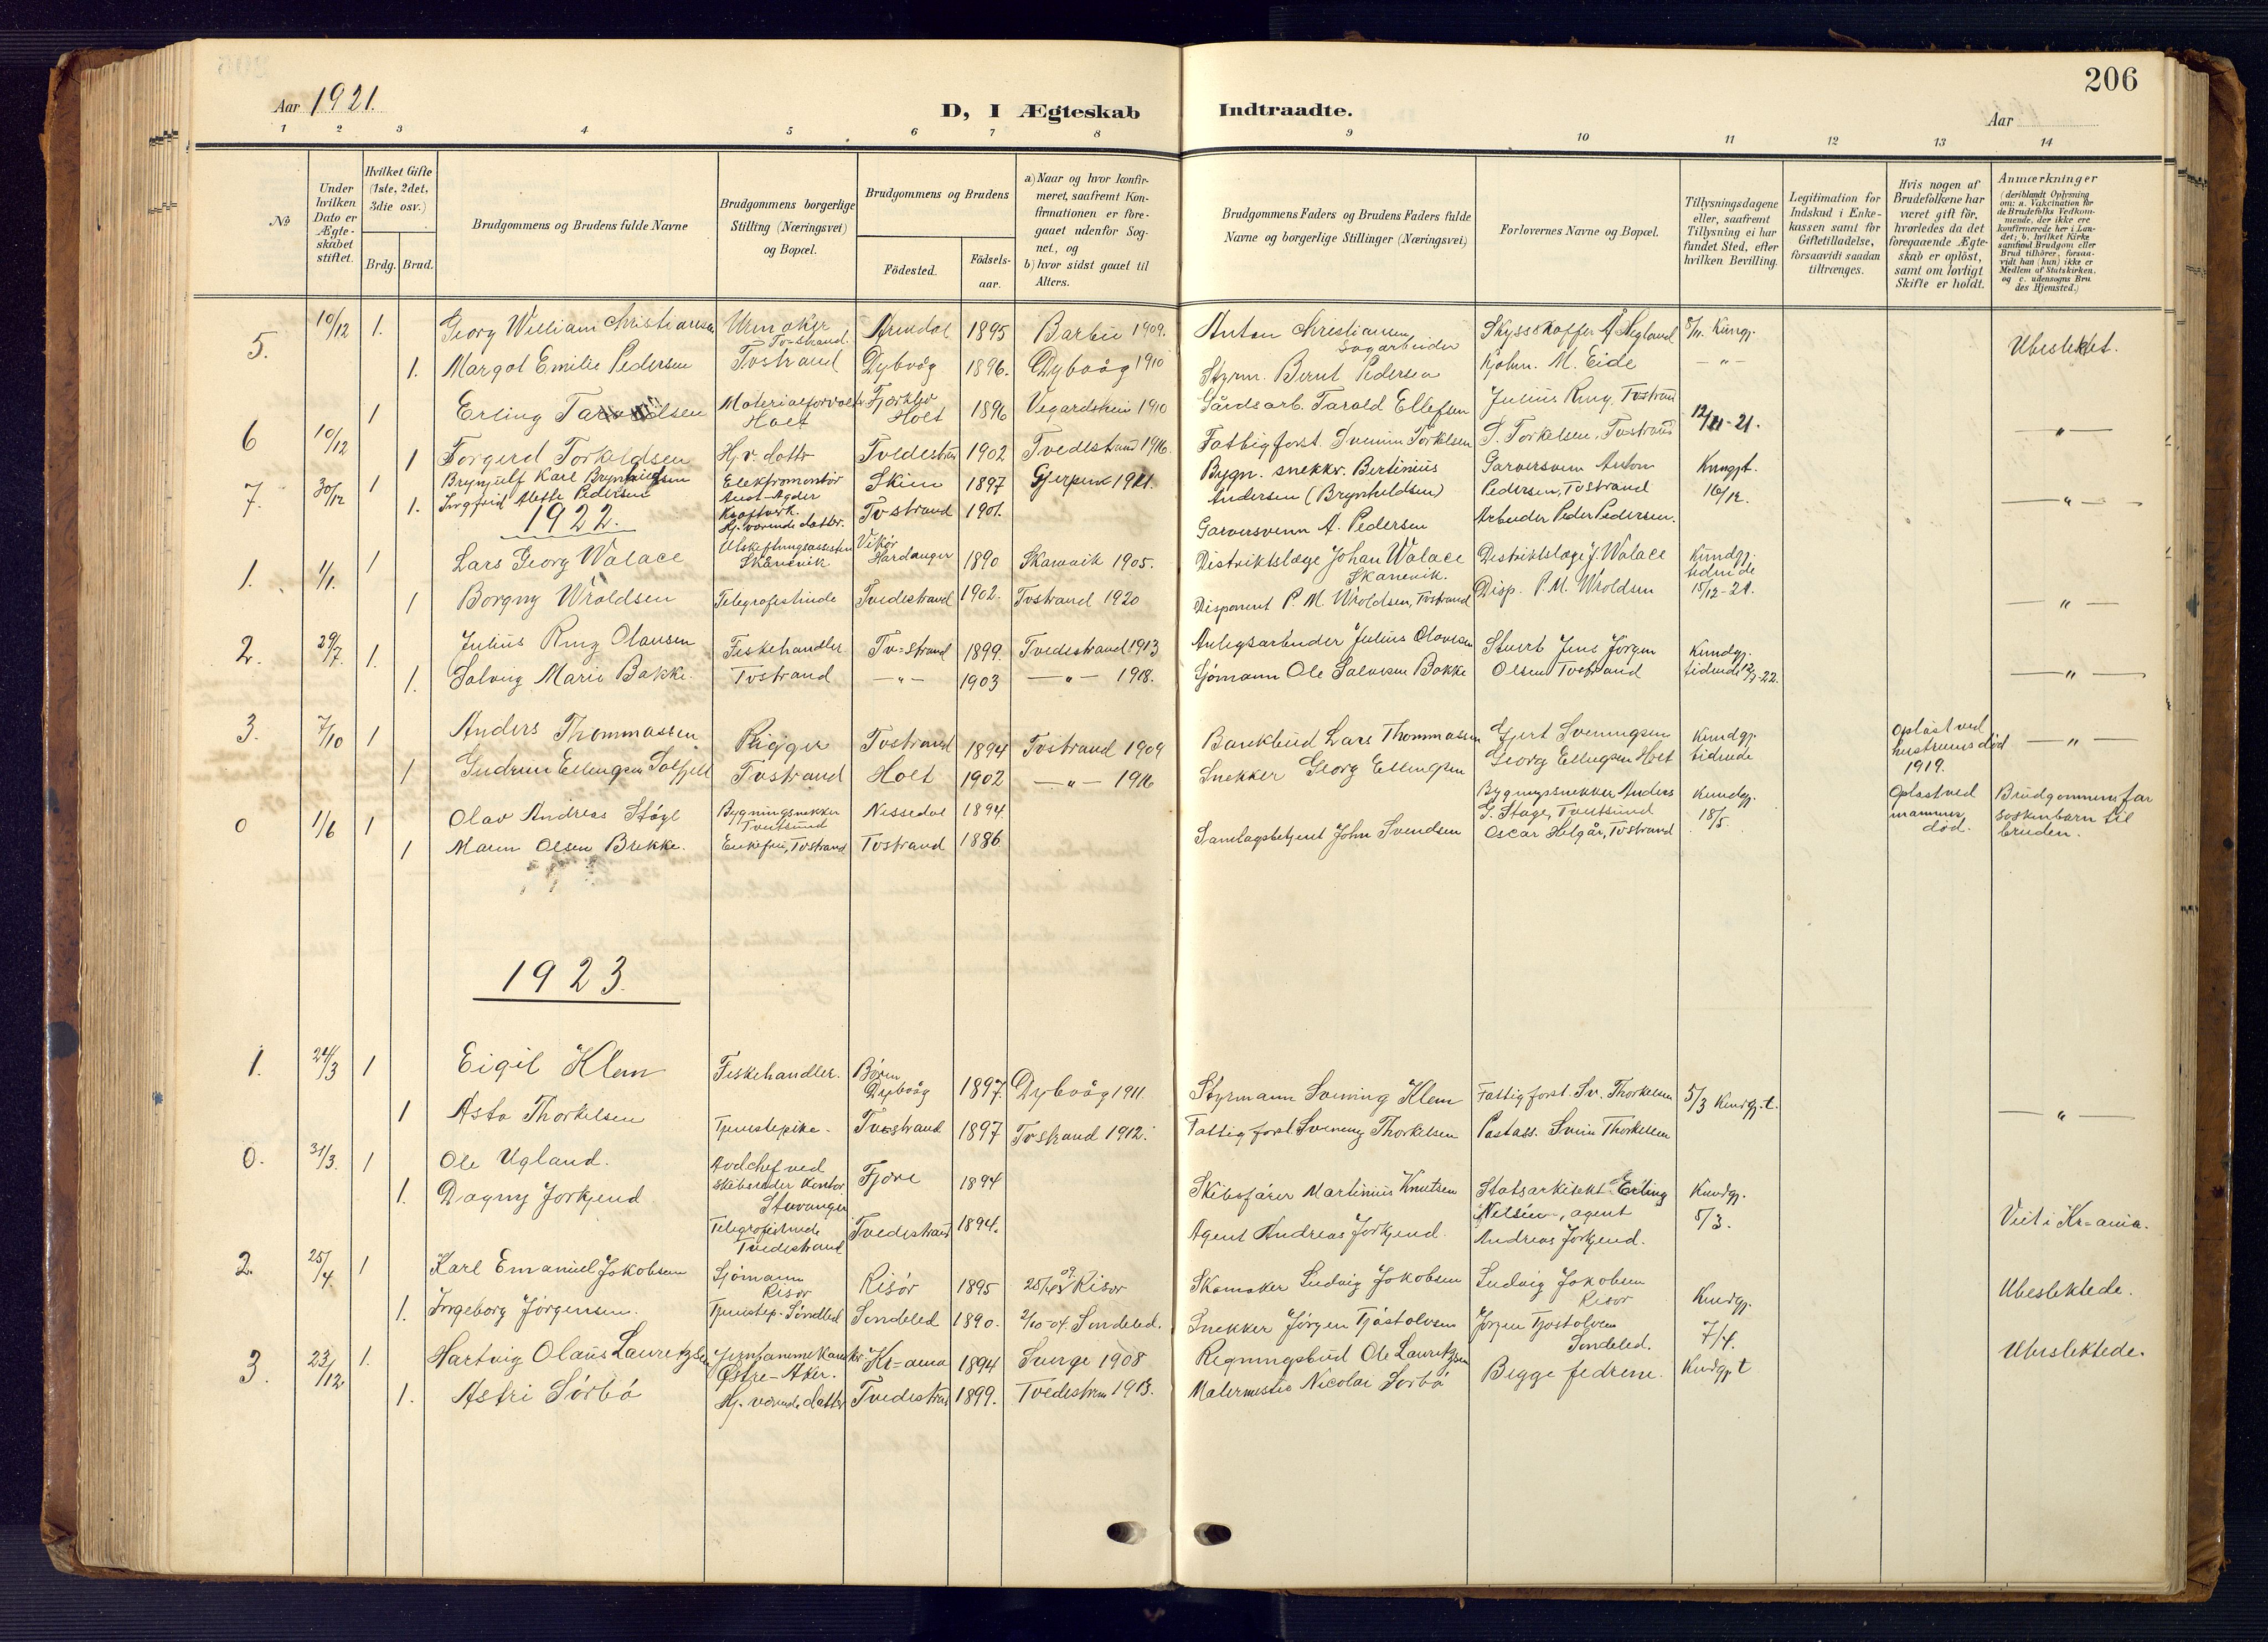 206
Aar 1921.
D, I Ægteskab Indtraadte.
Aar
1 2 3 4 5 6 7 8 9 10 11 12 13 14
No
Under hvilken Dato er Ægte-skabet stiftet.
Hvilket Gifte (1ste, 2det, 3die osv.)
Brdg. Brud.
Brudgommens og Brudens fulde Navne
Brudgommens borgerlige Stilling (Næringsvei) og Bopæl.
Brudgommens og Brudens
Födested. Födsels-aar.
a) Naar og hvor konfir-meret, saafremt Kon-firmationen er fore-gaaet udenfor Sog-net, og b) hvor sidst gaaet til Alters.
Brudgommens Faders og Brudens Faders fulde Navne og borgerlige Stillinger (Næringsvei)
Forlovernes Navne og Bopæl.
Tillysningsdagene eller, saafremt Tillysning ei har fundet Sted, efter hvilken Bevilling.
Legitimation for Indskud i Enke-kassen samt for Giftetilladelse, forsaavidt saadan tiltrænges.
Hvis nogen af Brudefolkene har været gift för, hvorledes da det foregaaende Ægte-skab er oplöst, samt om lovligt Skifte er holdt.
Anmærkninger (deriblandt Oplysning om: a. Vakcination for de Brudefolks Vedkom-mende, der ikke ere konfirmerede her i Lan-det; b. hvilket Kirke samfund Brudgom eller Brud tilhörer, forsaa-vidt han (hun) ikke er Medlem af Statskirken. og c. udensogns Bru des Hjemsted.)
5. 10/12 1. Georg William Christiansen Urmaker Tv-strand. Arendal 1895 Barbu 1909. Anton Christiansen, Sagarbeider Skyssskaffer A. Negland 8/11. Kungj. Ubeslektet.
1. Margot Emilie Pedersen Tvstrand Dybvåg 1896. Dybvåg 1910 Styrm. Bernt Pedersen Kjøbm. M. Eide — " —
6 10/12 1 Erling Olsen Holt Holt 1896 Vegardshei 1910 Gårdsarb. Tarald Ellefsen Julius Ring, Tvstrand 12/11-21. — " —
1 Torgerd Torkildsen Hj.v. datter Tvedestrand 1902 Tvedestrand 1916. Fattigforst. Svenum Torkelsen S. Torkelsen, Tvstrand
7. 30/12 1 Brynjulf Karl Brynhildsen Elektromontør Aust-Agder Kraftverk. Skien 1897 Gjerpen 1911. Bygn. snekker. Bertinius Andersen (Brynhildsen) Garversvenn Anton Pedersen, Tvstrand Kungjt. 16/12. — " —
1. Ingfrid Alette Pedersen Hj. værende datter. Tvstrand 1901. Garversvenn A. Pedersen Arbeider Peder Pedersen.
1922.
1. 1/1. 1 Lars Georg Walace Utskiftningsassistent Skånevik Vikør Hardanger 1890 Skånevik 1905. Distriktslæge Johan Walace Skanevik. Distriktslæge J. Walace Kundgj. tidende 15/12-21. — " —
1 Borgny Wroldsen Telegrafistinde Tvedestrand 1902. Tvstrand 1920 Disponent P. M. Wroldsen, Tvstrand Disp. P. M. Wroldsen
2. 29/7. 1. Julius Ring Olausen Fiskehandler Tv-strand 1899. Tvedestrand 1913 Anlegsarbeider Julius Olavesen Stuert Jens Jørgen Kundgj. — " —
1. Solveig Marie Bakke. Tvstrand — " — 1903 — " — 1918. Sjømann Ole Salvesen Bakke Olsen Tvstrand tidende 12/7-22.
3. 7/10 1 Anders Thommassen Rigger Tvstrand 1894 Tvstrand 1909 Bankbud Lars Thommassen Gjert Svenungsen Kundgj. tidende Opløst ved hustruens død 1919. — " —
1 Gudrun Ellingsen Solfjeld Tvstrand Holt 1902 — " — 1916 Snekker Georg Ellingsen Georg Ellingsen Holt
0 1/6 1 Olav Andreas Støyl Bygningsnekker Tveitsund Nissedal 1894. Bygningssnekker Anders G. Stage, Tveitsund Kundgj. 18/5. Opløst ved mannens død. Brudgommens far søskenbarn til bruden.
1 Maren Olsen Brekke. Enkefru, Tvstrand Tvstrand 1886 Samlagsbetjent John Svendsen Oscar Helgår, Tvstrand
1923.
1. 24/3 1 Eigil Klem Fiskehandler. Børøen Dybvåg 1897. Dybvåg 1911. Styrmann Svening Klem Fattigforst. Sv. Thorkelsen 5/3 Kundgj.t. — " —
1 Asta Thorkelsen Tjenestepike. Tvstrand 1897 Tvstrand 1912. Fattigforst. Svenung Thorkelsen Postass. Svein Thorkelsen
0. 31/3. 1 Ole Ugland. Avd.chef ved skibsreder kontor Stavanger Fjære 1894 Skibsfører Martinius Knutsen Statsarkitekt Erling Nielsen, agent Kundgj. 5/3. Viet i Kr-ania.
1. Dagny Jorkjend Telegrafistinde Tvedestrand Tvedestrand 1894. Agent Andreas Jorkjend. Andreas Jorkjend.
2. 25/4. 1 Karl Emanuel Jakobsen Sjømann Risør Risør 1895 Risør Skomaker Ludvig Jakobsen Ludvig Jakobsen Risør Kundgj. 7/4. Ubeslektede.
1. Ingeborg Jørgensen. Tjenestep. Søndled Søndeled 1890. 2/10-04. Søndeled. Snekker Jørgen Tjøstolvsen Jørgen Tjøstolvsen Søndeled.
3. 23/12 1. Hartvig Olaus Lauretzsen Østre-Aker. Kr-ania 1894 1908 Regningsbud Ole Lauretzsen Begge fedrene. Kundgjt Ubeslektede.
1. Astri Sørbø Hj. værende datter Tvedestrand 1899. Tvedestran 1913. Malermester Nicolai Sørbø